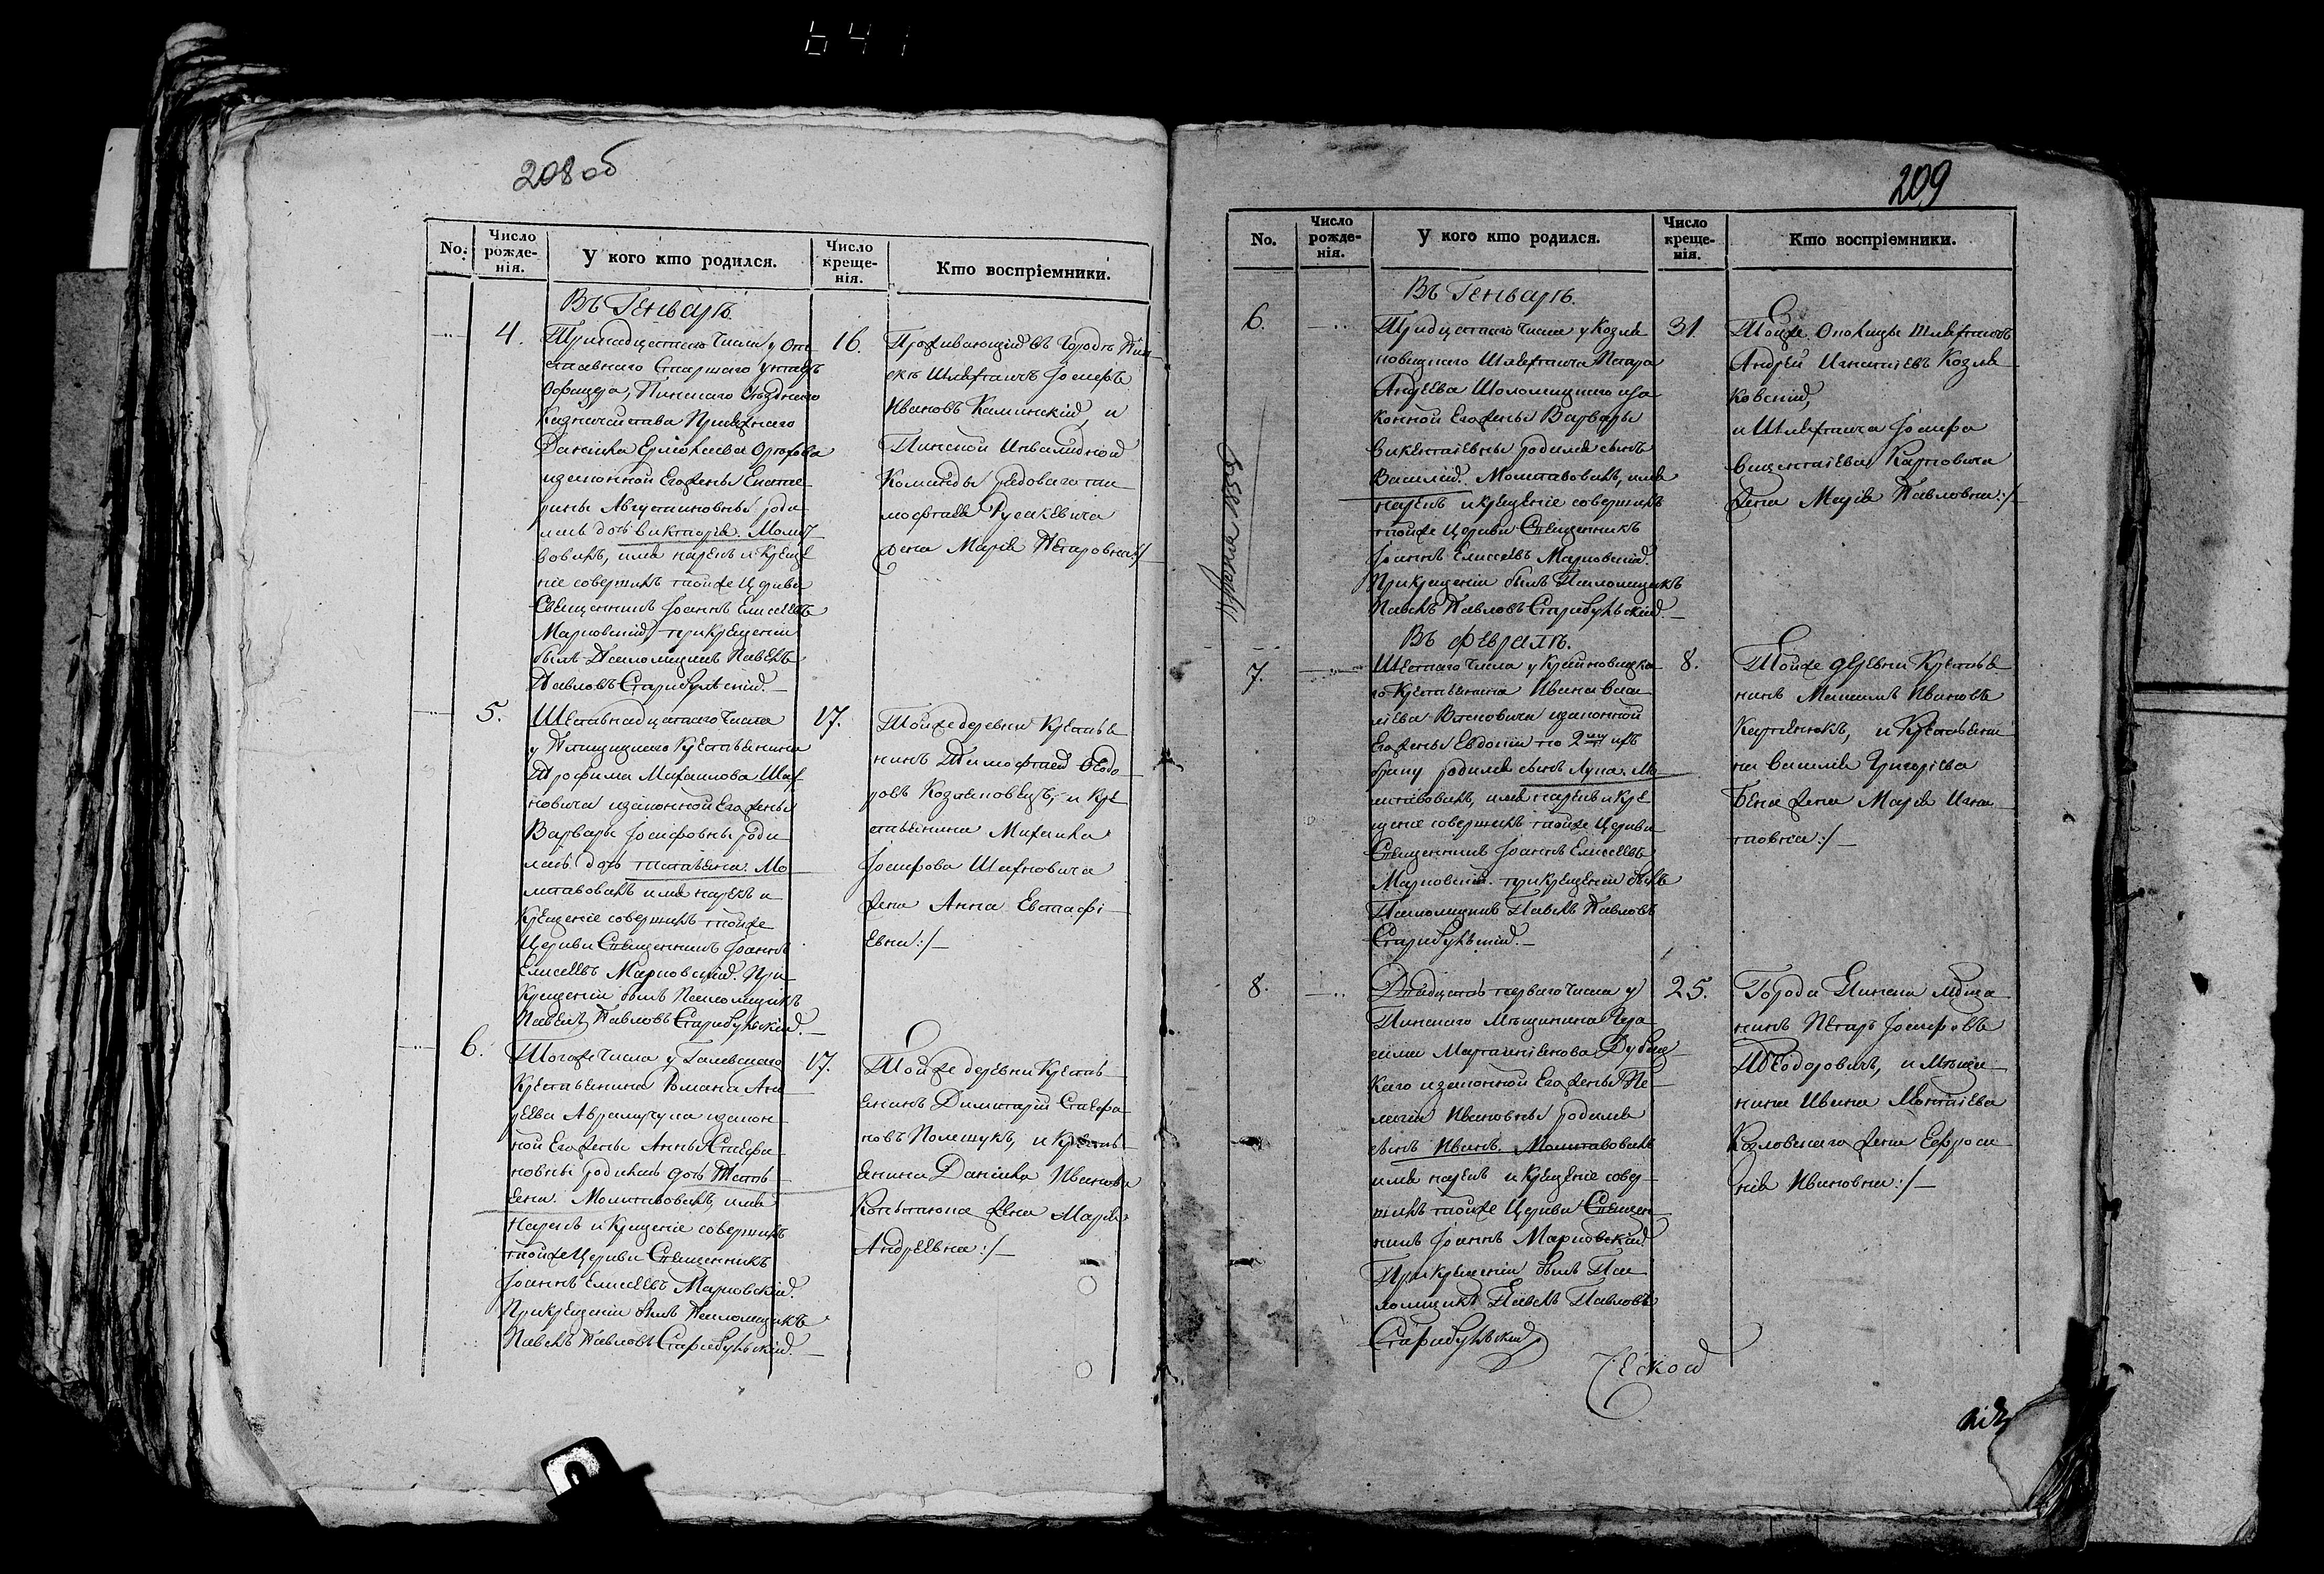 641
208 об
No.
Число рожде-нія.
У кого кто родился.
Число креще-нія.
Кто воспріемники.
Въ Генварѣ.
4.
Тринадцатаго Числа у Отс
ставнаго Старшаго Унтеръ
Офицера, Пинскаго Уѣзднаго
Казначейства Присяжнаго
Даніила Ермолаева
изаконной Его жены Екате
рины Августиновны роди
лась дочь Викторія. Молит
вовалъ, имя нарекъ и Креще
ніе совершилъ тойже Церкви
Священникъ Іоаннъ Елисеевъ
Марковскій, при Крещеніи
былъ Псаломщикъ Павелъ
Павловъ Старибульскій.—
16.
Проживающій въ Городѣ Пин-
скѣ Шляхтичъ Іосифъ
Ивановъ Каминскій, и
Пинской Инвалидной
Команды рядоваго Ти
мофтея Русакевича
жена Марія Петровна:/
5.
Шестнадцатаго Числа
у Крестьянина
Трофима Михаилова Шах
новича изаконной Его жены
Варвары Іосифовны роди
лась дочь Татьяна. Мо
литвовалъ имя нарекъ и
Крещеніе совершилъ тойже
Церкви Священникъ Іоаннъ
Елисеевъ Марковскій. При
Крещеніи былъ Псаломщикъ
Павелъ Павловъ Старибульскій.—
17.
Тойже деревни Крестья
нинъ Тимофтей Ѳедо
ровъ Козляковецъ, и Кре
стьянина Михаила
Іосифова Шахновича
жена Анна Евстафі
евна:/—
6.
Тогоже Числа у Галевскаго
Крестьянина Романа Анд
реева изакон
ной Его жены Анны Стефа
новны родилась дочь Тать
яна. Молитвовалъ, имя
нарекъ и Крещеніе совершилъ
тойже Церкви Священникъ
Іоаннъ Елисеевъ Марковскій.
При Крещеніи былъ Псаломщикъ
Павелъ Павловъ Старибульскій.—
17.
Тойже деревни Кресть
янинъ Димитрій Стефа
новъ Полещукъ, и Кресть
янина Даніила Иванова
жена Марія
Андреевна:/—
209
No.
Число рожде-нія.
У кого кто родился.
Число креще-нія.
Кто воспріемники.
Въ Генварѣ.
6.
Тридцатаго Числа у Козля
ковицкаго Шляхтича Петра
Андреева Шоломицкаго иза
конной Его жены Варвары
Викентіевны родился сынъ
Василій. Молитвовалъ, имя
нарекъ и крещеніе совершилъ
тойже Церкви Священникъ
Іоаннъ Елисеевъ Марковскій.
При Крещеніи былъ Псаломщикъ
Павелъ Павловъ Старибульскій.—
31
Тойже Околицы Шляхтичъ
Андрей Игнатіевъ Козля
ковскій,
и Шляхтича Іосифа
Викентіева Карповича
жена Марія Павловна:/—
Въ Февралѣ.
7.
Шестаго Числа у Крайновицка
го Крестьянина Ивана Васи
ліева изаконной
Его жены Евдокіи по 2му ихъ
браку родился сынъ Лука. Мо
литвовалъ, имя нарекъ и Кре
щеніе совершилъ тойже Церкви
Священникъ Іоаннъ Елисеевъ
Марковскій. при Крещеніи былъ
Псаломщикъ Павелъ Павловъ
Старибульскій.—
8.
Тойже деревни Крестья
нинъ Ивановъ
и Крестьяни
на Василія Григоріева
жена Марія Игна
товна:/—
8.
Двадцать перваго Числа у
Пинскаго Мѣщанина
Мартиніянова
изаконной Его жены Пе
лагіи Ивановны родился
сынъ Иванъ. Молитвовалъ
имя нарекъ и Крещеніе совер
шилъ тойже Церкви Священ
никъ Іоаннъ Марковскій.
При Крещеніи былъ Пса
ломщикъ Павелъ Павловъ
Старибульскій
25.
Города Пинска Мѣща
нинъ Петръ Іосифовъ
Ѳеодоровичъ, и Мѣща
нина Ивана
Козловскаго жена Ефроси
нія Ивановна:/—